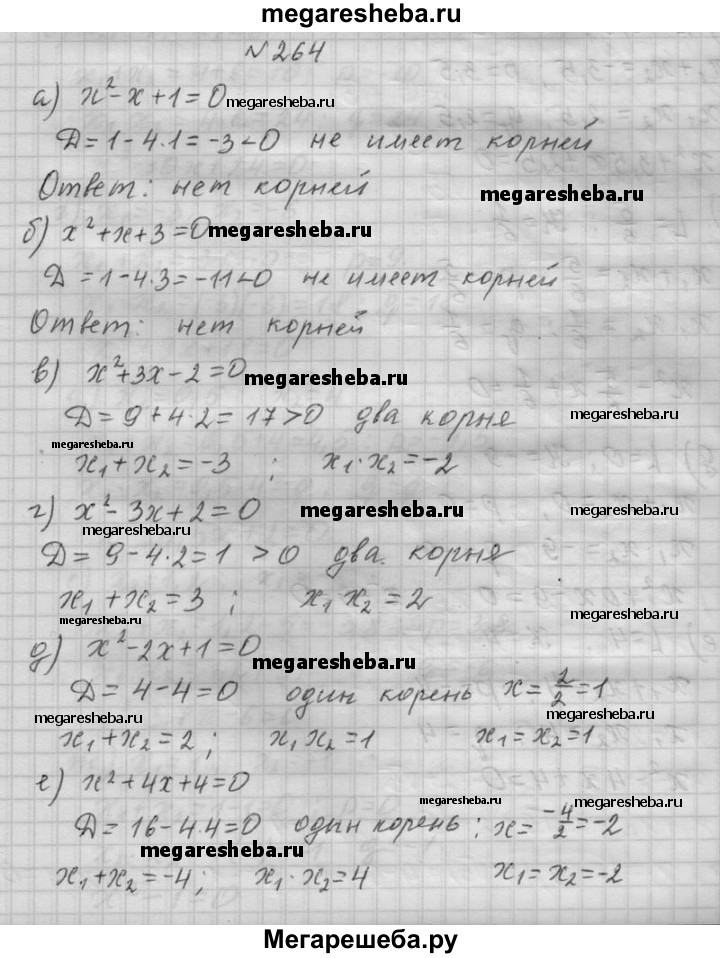 megaresheba.ru
№ 264
а) x² - x + 1 = 0 megaresheba.ru
Д = 1 - 4·1 = -3 < 0 не имеет корней
Ответ: нет корней megaresheba.ru
б) x² + x + 3 = 0 megaresheba.ru
Д = 1 - 4·3 = -11 < 0 не имеет корней
Ответ: нет корней
в) x² + 3x - 2 = 0 megaresheba.ru
Д = 9 + 4·2 = 17 > 0 два корня megaresheba.ru
megaresheba.ru
x₁ + x₂ = -3 ; x₁·x₂ = -2
г) x² - 3x + 2 = 0 megaresheba.ru megaresheba.ru
megaresheba.ru
Д = 9 - 4·2 = 1 > 0 два корня
x₁ + x₂ = 3 ; x₁ x₂ = 2 megaresheba.ru
megaresheba.ru
д) x² - 2x + 1 = 0 megaresheba.ru
Д = 4 - 4 = 0 один корень x = 2/2 = 1
megaresheba.ru megaresheba.ru
x₁ + x₂ = 2 ; x₁ x₂ = 1 x₁ = x₂ = 1
е) x² + 4x + 4 = 0 megaresheba.ru megaresheba.ru
Д = 16 - 4·4 = 0 один корень ; x = -4/2 = -2
megaresheba.ru
x₁ + x₂ = -4 ; x₁·x₂ = 4 x₁ = x₂ = -2
megaresheba.ru megaresheba.ru
Мегарешеба.ру